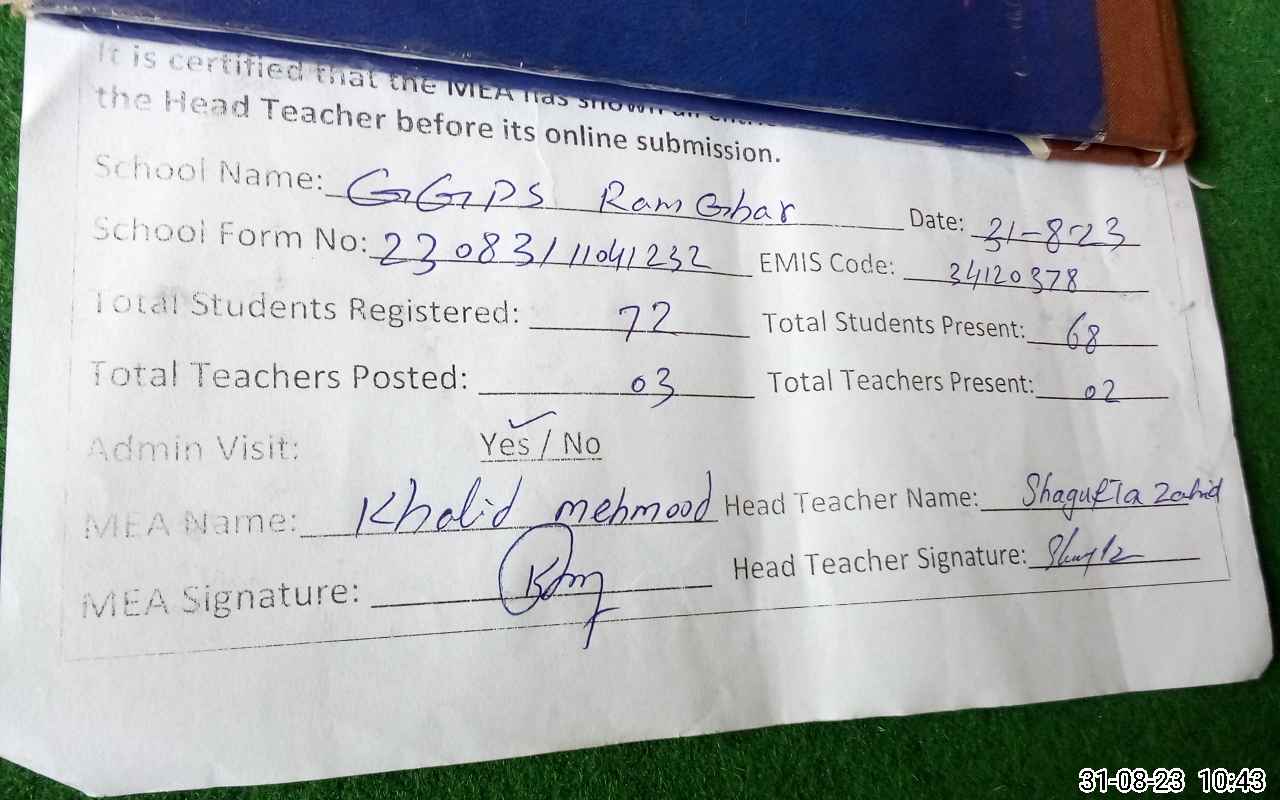 It is certified that the MEA has shown all
the Head Teacher before its online submission.
School Name: GGPS Ram Ghar Date: 31-8-23
School Form No: 23083/11041232 EMIS Code: 34120378
Total Students Registered: 72 Total Students Present: 68
Total Teachers Posted: 03 Total Teachers Present: 02
Admin Visit: Yes / No
MEA Name: Khalid mehmood Head Teacher Name: Shagufta Zahid
MEA Signature: Head Teacher Signature:
31-08-23 10:43